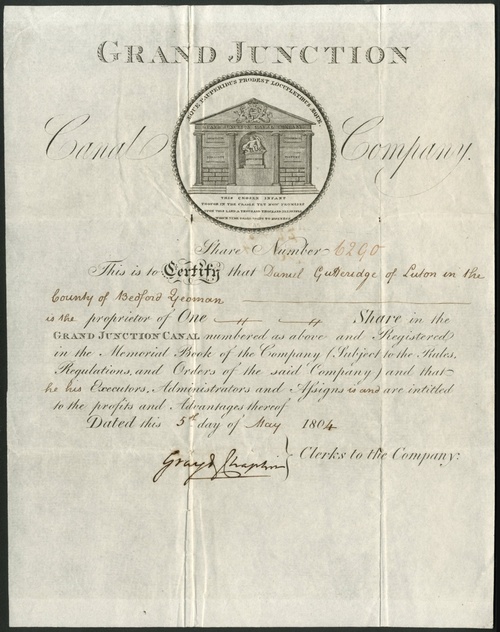 GRAND JUNCTION
ÆQUE PAUPERIBUS PRODEST, LOCUPLETIBUS ÆQUE;
Canal Company.
THIS CHOSEN INFANT
THOUGH IN THE CRADLE YET NOW PROMISES
UPON THIS LAND A THOUSAND THOUSAND BLESSINGS
WHICH TIME SHALL BRING TO RIPENESS
Share Number 6290
This is to Certify that Daniel Gutteridge of Luton in the
County of Bedford Yeoman
is the proprietor of One Share in the
GRAND JUNCTION CANAL numbered as above and Registered
in the Memorial Book of the Company (Subject to the Rules,
Regulations, and Orders of the said Company) and that
he his Executors, Administrators and Assigns is and are intitled
to the profits and Advantages thereof
Dated this 5th day of May 1804
Gray & Chaplin } Clerks to the Company: